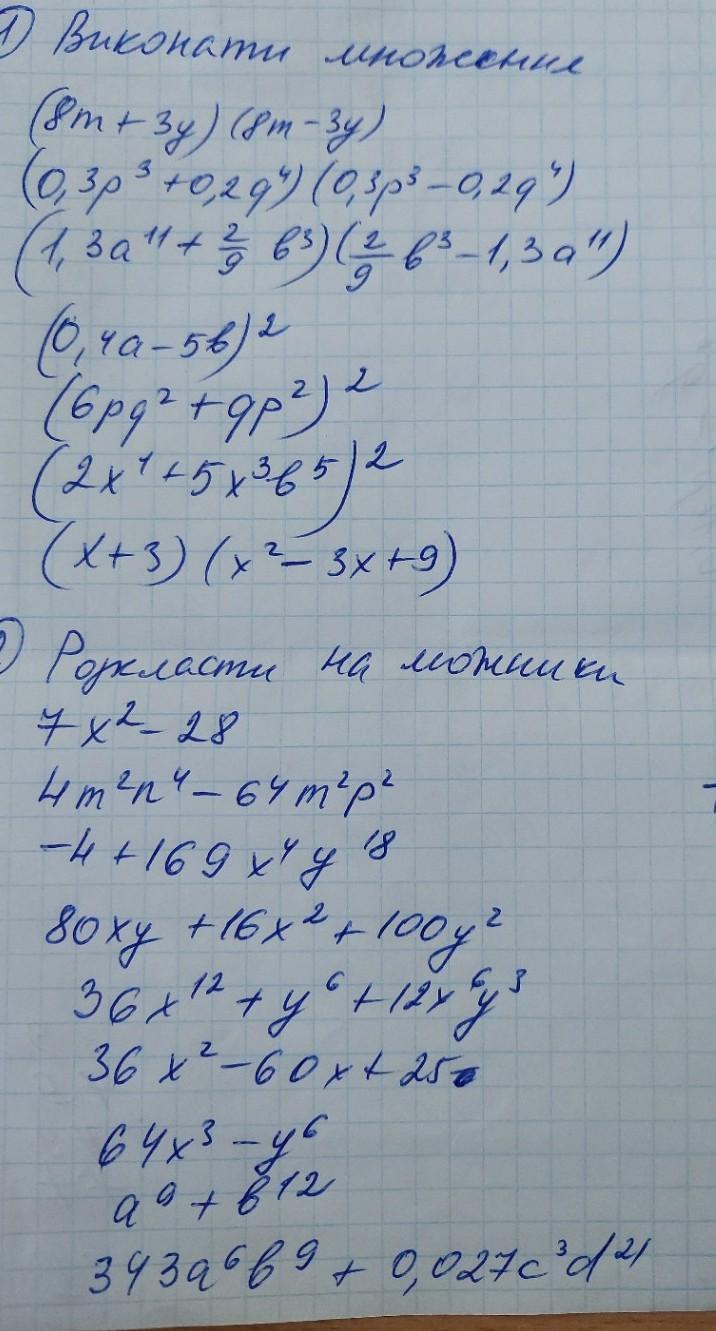 1) Виконати множення
(8m + 3y) (8m - 3y)
(0,3p³ + 0,2q⁴) (0,3p³ - 0,2q⁴)
(1,3a¹¹ + 2/9 b³) (2/9 b³ - 1,3a¹¹)
(0,4a - 5b)²
(6pq² + qp²)²
(2x⁴ + 5x³b⁵)²
(x + 3) (x² - 3x + 9)
2) Розкласти на множники
7x² - 28
4m²n⁴ - 64m²p²
-4 + 169x⁴y¹⁸
80xy + 16x² + 100y²
36x¹² + y⁶ + 12x⁶y³
36x² - 60x + 25
64x³ - y⁶
a⁹ + b¹²
343a⁶b⁹ + 0,027c³d²¹